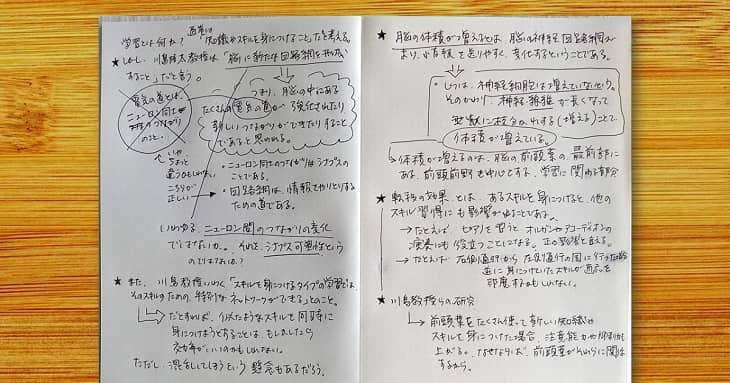 学習とは何か? 通常は
知識やスキルを身につけること」だと考える。
★しかし、川島隆太教授は「脳に新たな回路網を
すること」だと言う。
つまり、脳の中にある
たくさんの電気の道が 強化されたり
新しいつながりができたりすること
であると思われる。
電気の道とは、
ニューロン同士
のつながり
のこと。
いや
ちょっと
違うかもしれない
こちらが
正しい
・ニューロン同士のつながりはシナプスの
ことである。
・回路網は、情報をやりとりする
ための道である。
いわゆる、ニューロン間のつながりの変化
ではないか。それを、シナプス可塑性という
のではないか?
★また、川島教授いわく「スキルを身につけるタイプの学習とは、
そのスキルのための、特別なネットワークができる」とのこと。
だとすれば、似たようなスキルを同時に
身につけようとすることは、もしかしたら
効率がいいのかもしれない。
ただし、混乱してしまうという懸念もあるだろう。
★脳の体積が増えるとは、脳の神経回路網が
より、情報を送りやすく、変化するということである。
・じつは、神経細胞は増えていないという。
そのかわり、神経線維が長くなって
枝分かれする(増える)ことで、
体積が増えている。
→体積が増えるのは、脳の前頭葉の、最前部に
ある、前頭前野を中心とする、学習に関わる部分
★転移の効果とは、あるスキルを身につけると、他の
スキル習得にも影響が出ることである。
→たとえば、ピアノを習うと、オルガンやアコーディオンの
演奏にも役立つことになる。正の影響と言える。
→たとえば、右側通行から左側通行の国に行った場合
逆に身につけていたスキルが適応を
邪魔するかもしれない。
★川島教授らの研究
→前頭葉をたくさん使って新しい知識や
スキルを身につけた場合、注意能力や抑制力も
上がる。なぜならば、前頭葉がそれらに関係
するから。